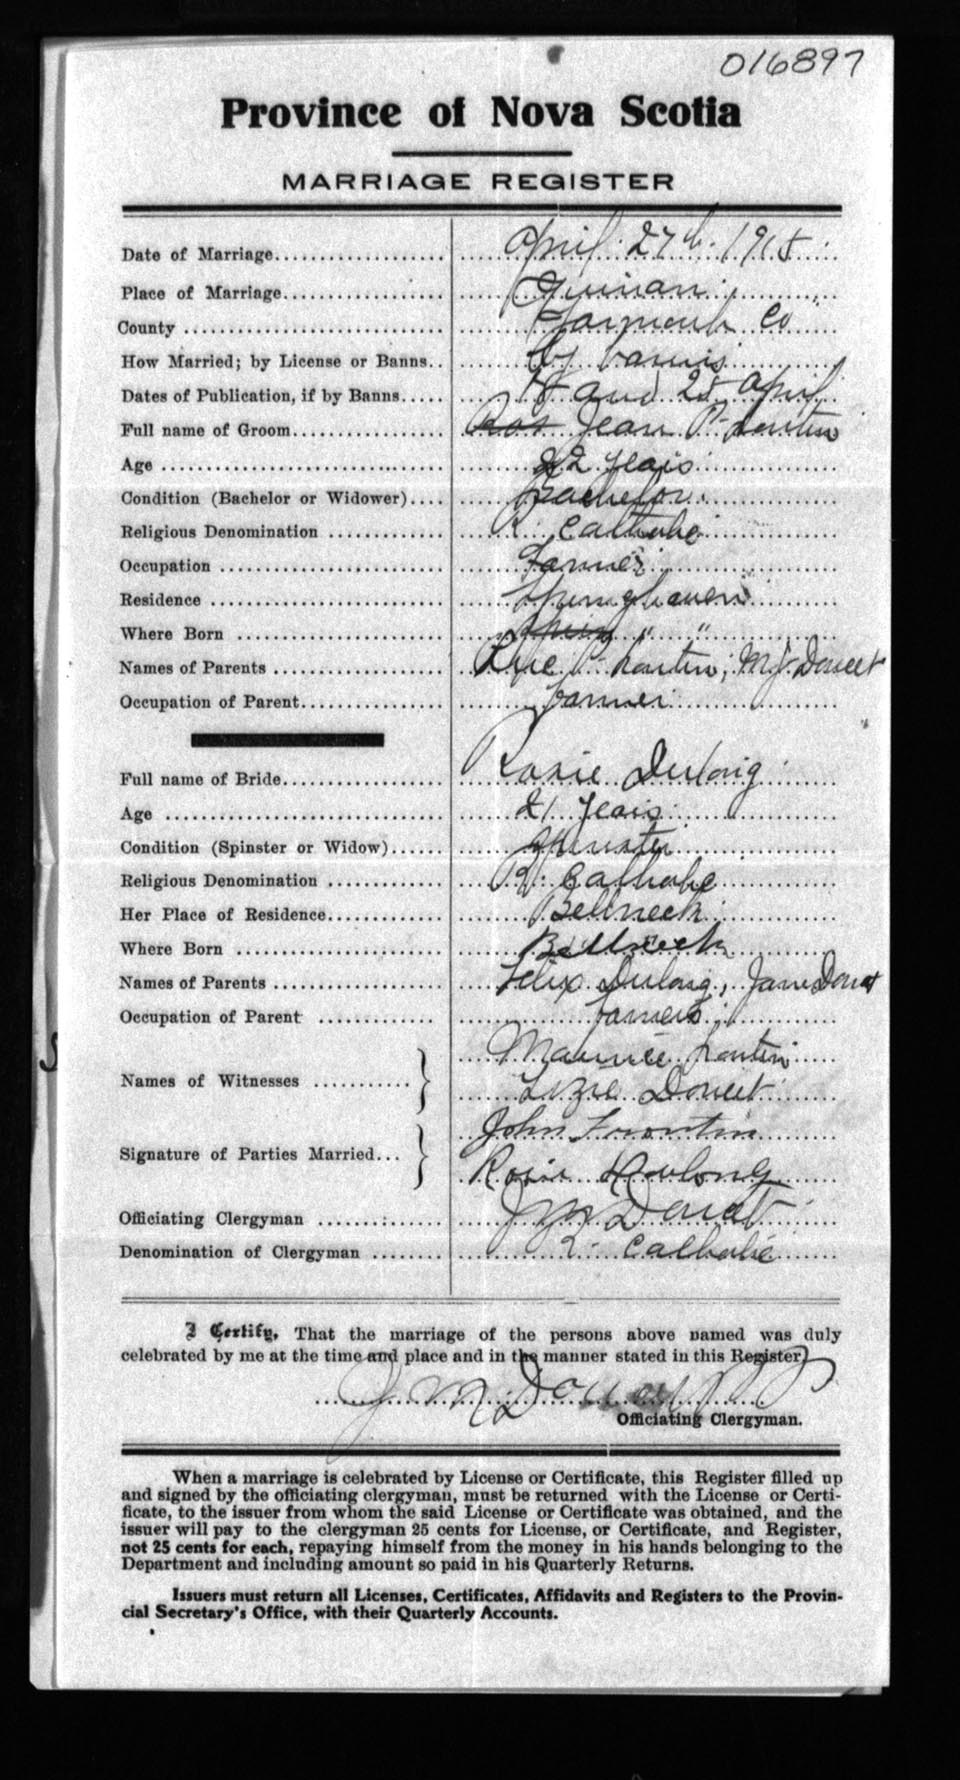 016897
Province of Nova Scotia
MARRIAGE REGISTER
Date of Marriage.................... April 27th 1915
Place of Marriage.................. Quinan
County .............................. Yarmouth Co
How Married; by License or Banns.. by banns
Dates of Publication, if by Banns..... 18 and 25 April
Full name of Groom.................. Jean P. Frontin
Age .................................... 22 years
Condition (Bachelor or Widower).... Bachelor
Religious Denomination ............. R. Catholic
Occupation .......................... Farmer
Residence ........................... Springhaven
Where Born ......................... " "
Names of Parents ................... Luc P. Frontin, M J. Doucet
Occupation of Parent................ farmer
Full name of Bride................... Rosie Dulong
Age .................................... 21 years
Condition (Spinster or Widow)...... Spinster
Religious Denomination ............. R. Catholic
Her Place of Residence.............. Bellneck
Where Born ......................... Bellneck
Names of Parents ................... Felix Dulong, Jane Doucet
Occupation of Parent .............. farmers
Names of Witnesses ............ Maurice Frontin
Lizie Doucet
Signature of Parties Married... John Frontin
Rosie Dulong
Officiating Clergyman ............. J M Doucet
Denomination of Clergyman ........ R. Catholic
I Certify, That the marriage of the persons above named was duly
celebrated by me at the time and place and in the manner stated in this Register.
J M Doucet P P
Officiating Clergyman.
When a marriage is celebrated by License or Certificate, this Register filled up
and signed by the officiating clergyman, must be returned with the License or Certi-
ficate, to the issuer from whom the said License or Certificate was obtained, and the
issuer will pay to the clergyman 25 cents for License, or Certificate, and Register,
not 25 cents for each, repaying himself from the money in his hands belonging to the
Department and including amount so paid in his Quarterly Returns.
Issuers must return all Licenses, Certificates, Affidavits and Registers to the Provin-
cial Secretary's Office, with their Quarterly Accounts.